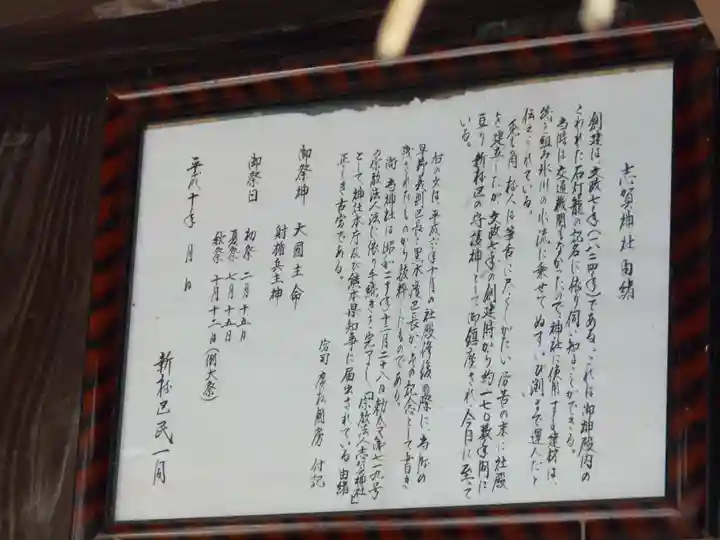 志賀神社由緒
創建は、文政七年(一八二四年)である。これは御神殿内の
こわれた石灯籠の記名に依り伺い知ることができる。
当時は交通機関もなかったので神社に使用する建材は、
筏を組み氷川の水流に乗せて ぬすっぴ渕まで運んだと
伝えられている。
村人は筆舌に尽くしがたい辛苦の末に社殿
を建立したが文政七年の創建時から約一七〇数年間に
亘り 新村区の守護神として御鎮座され今日に至って
いる。
右の文は、平成六年十月の社殿修復の際に、当所の
早野義則区長と黒水 区長が、その記念として書き
残されたものから抜粋したものである。
尚、当神社は昭和二十年十二月二十八日勅令第七一九号
の宗教法人法に依り手続きを完了し、「宗教法人志賀神社」
として神社本庁及び熊本県知事に届出されている由緒
正しき古宮である。
宮司 付記
御祭神 大国主命
射楯兵主神
御祭日 初祭 二月十五日
夏祭 七月十五日
秋祭 十月十二日(例大祭)
平成十年 月 日
新村区民一同